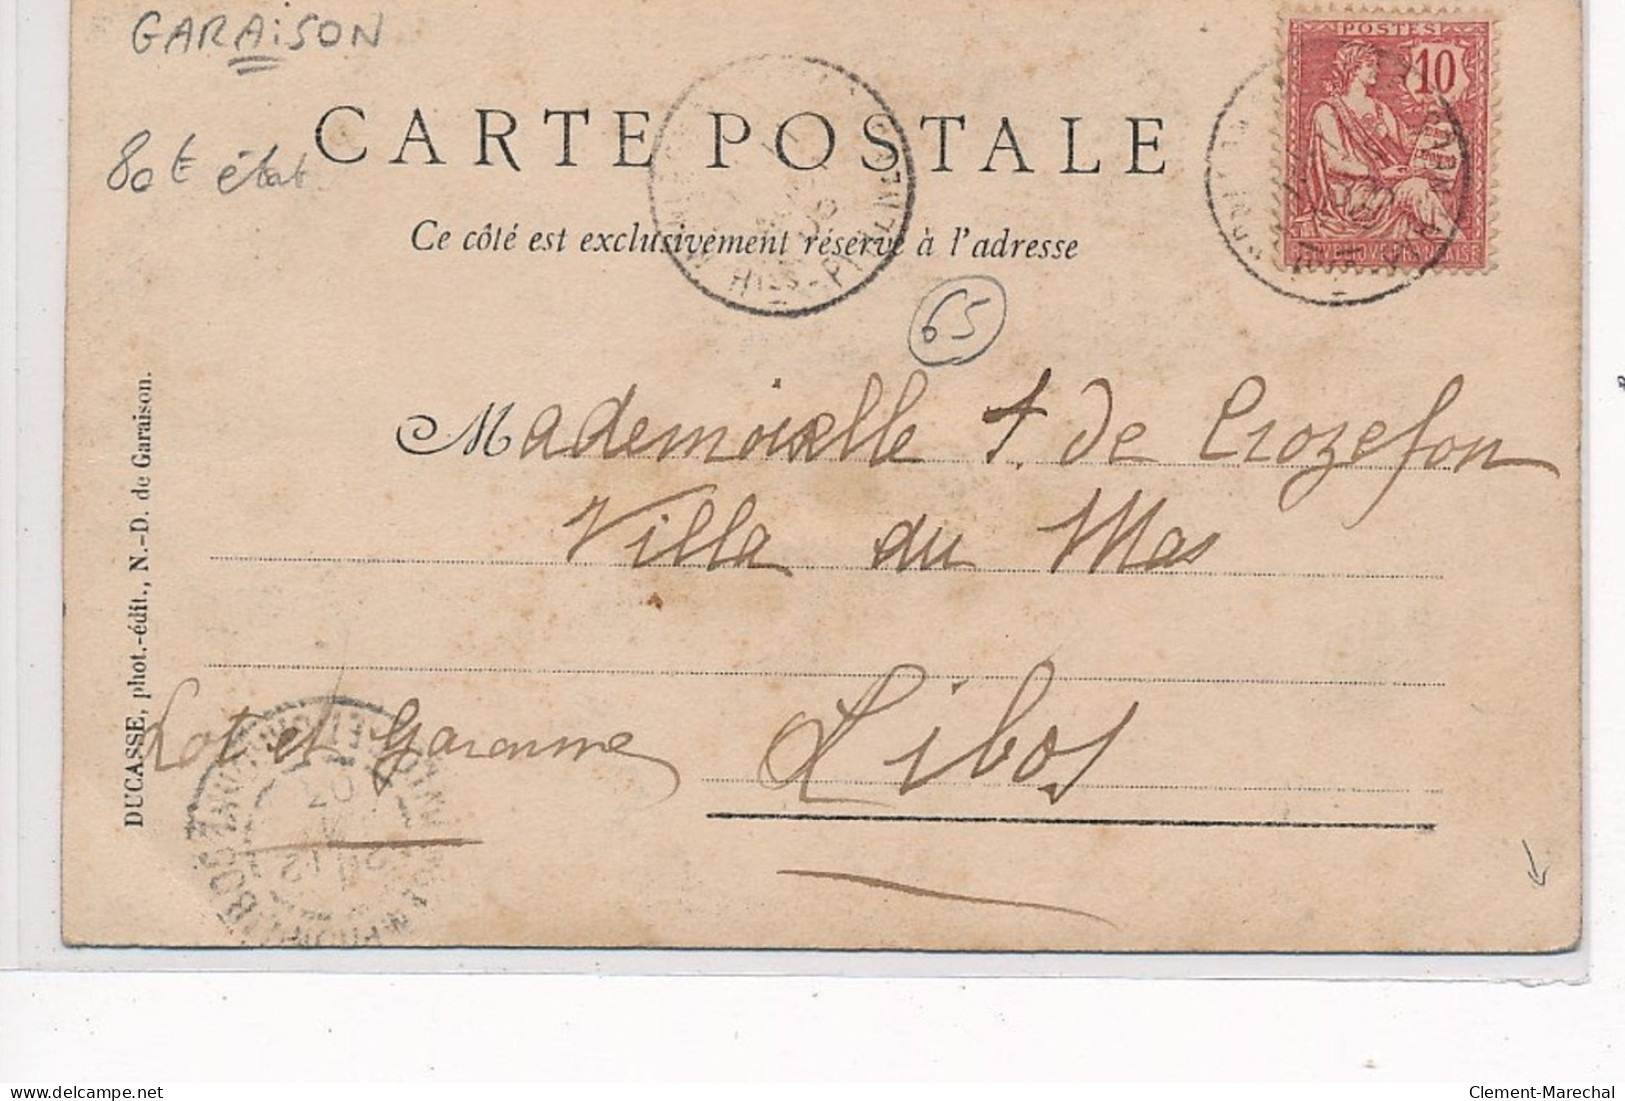 GARAISON
POSTES
10
CARTE POSTALE
état
Ce côté est exclusivement réservé à l'adresse
HTES-PYRÉNÉES
65
Mademoiselle
de Crozefon
Villa du Mas
Libos
Lot et Garonne
DUCASSE, phot.-édit., N.-D. de Garaison.
delcampe.net
Clement-Marechal